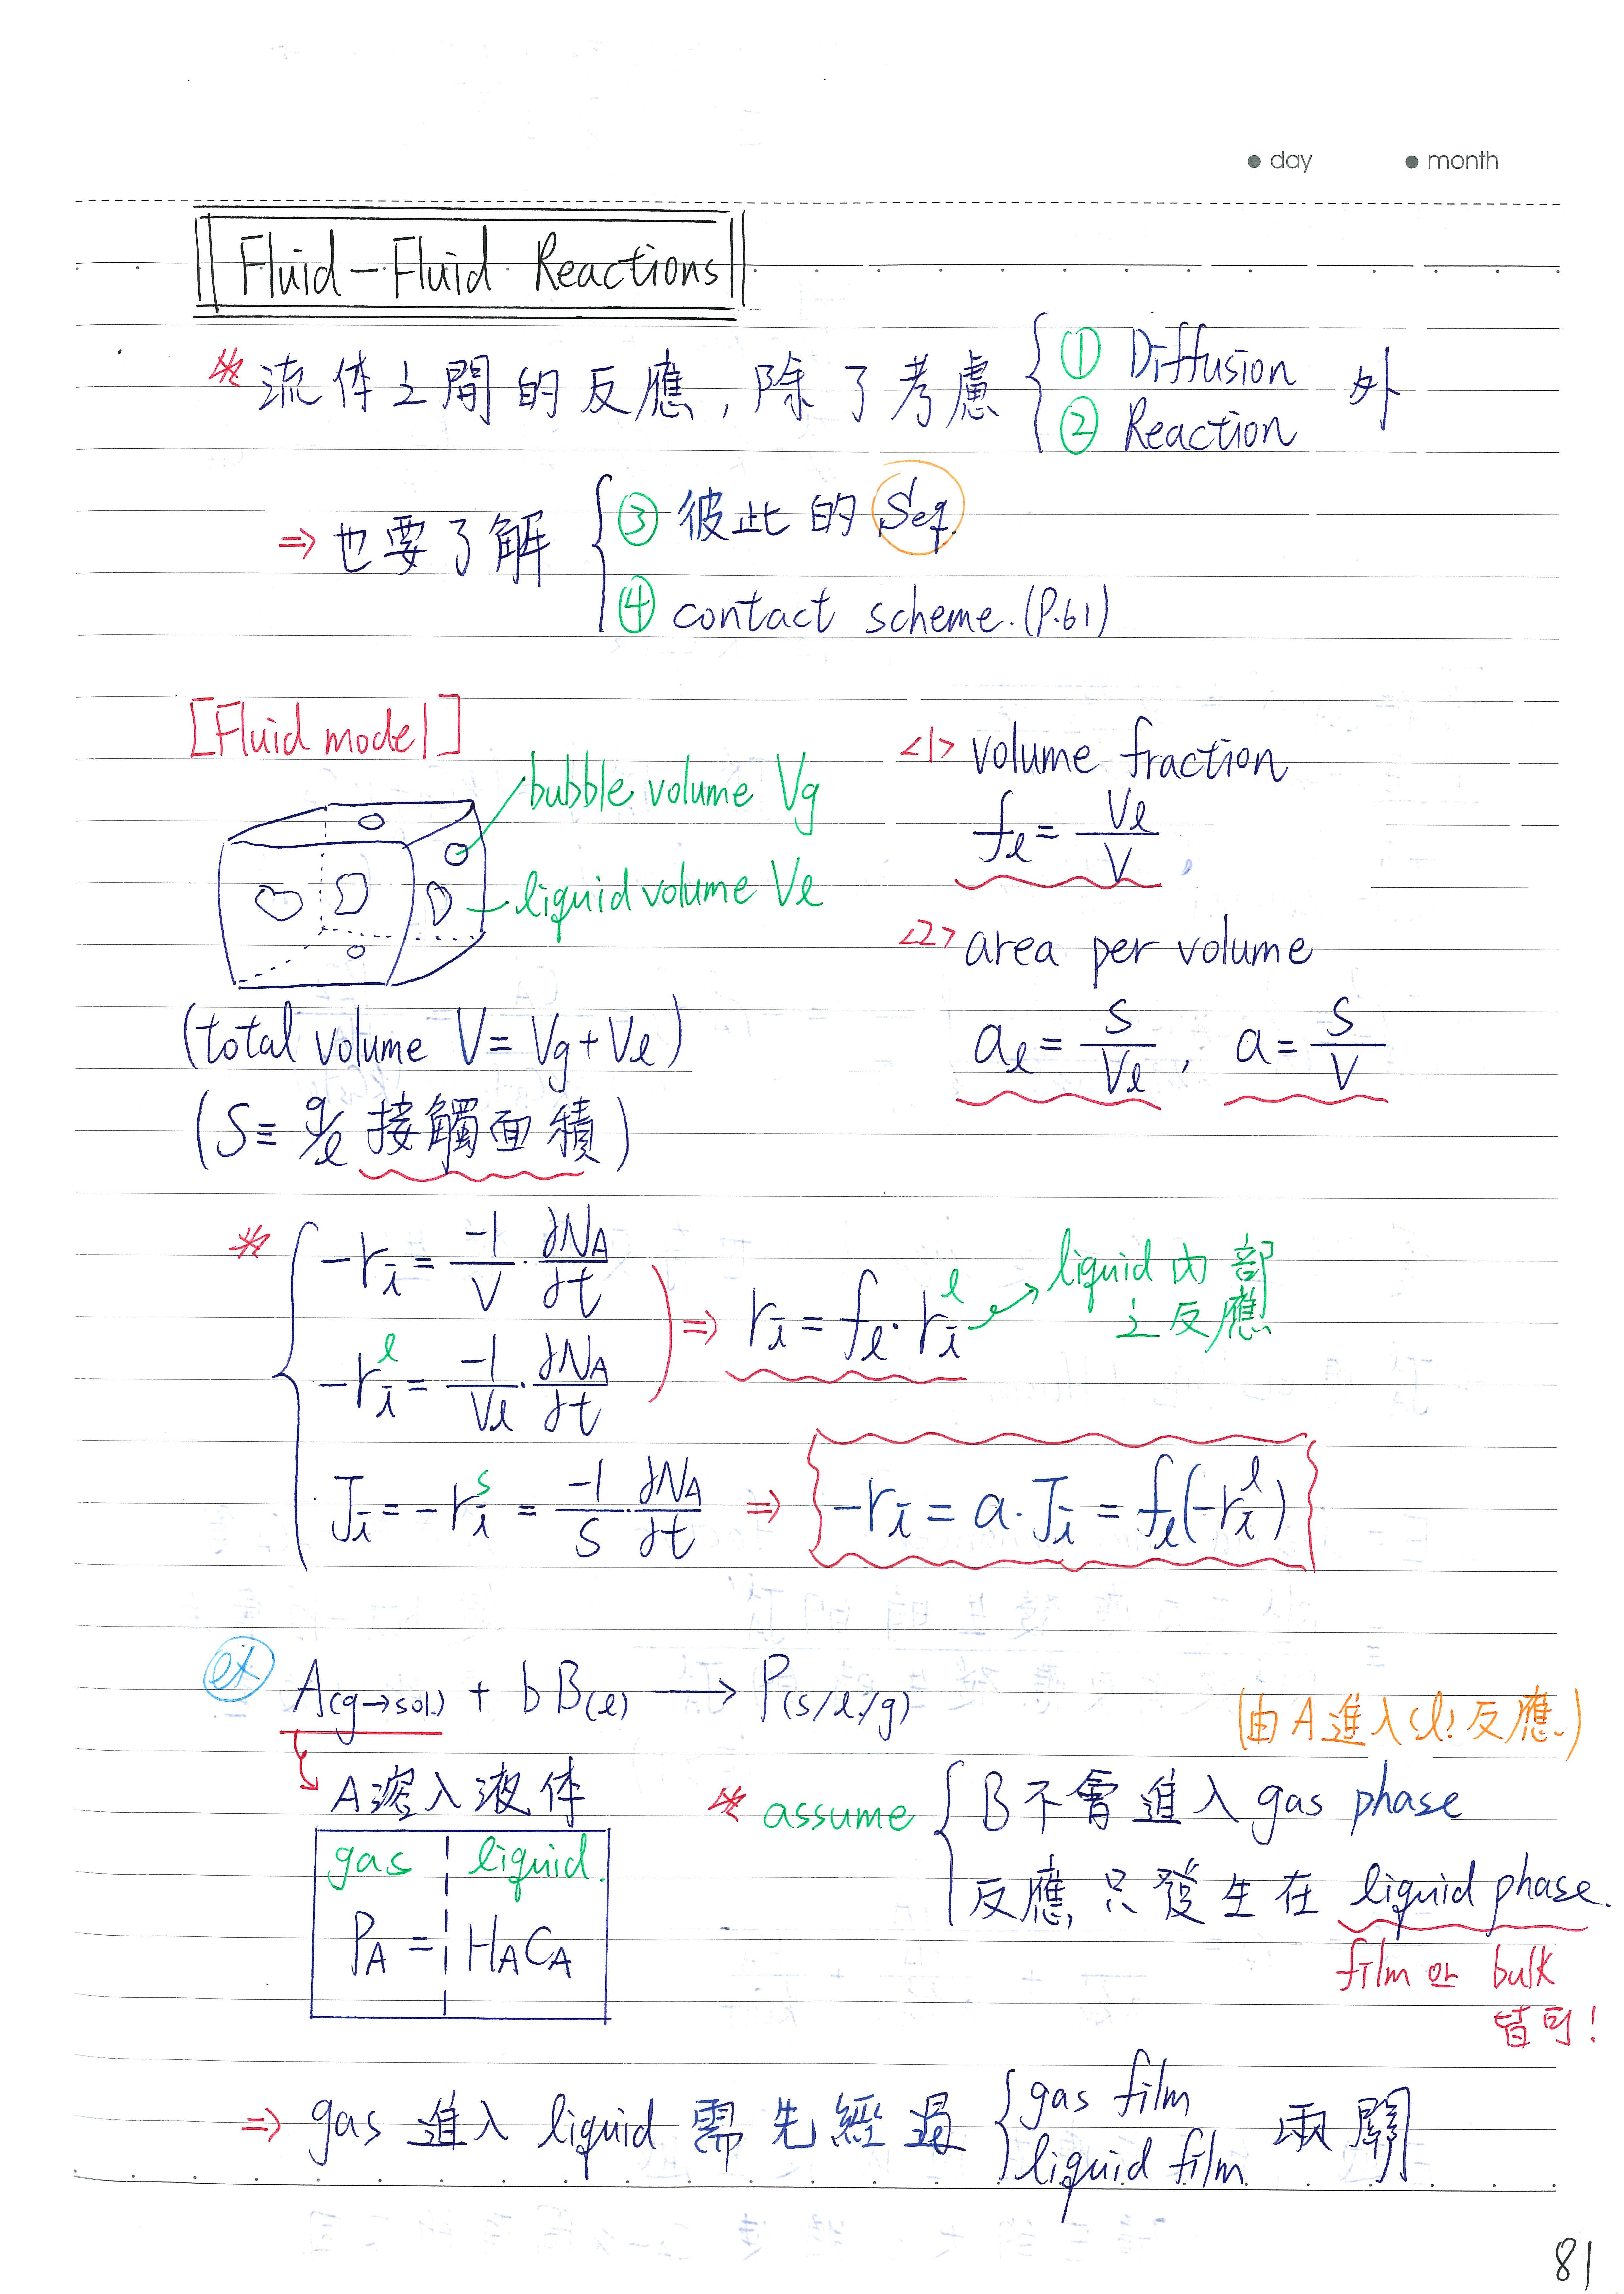 ● day ● month
Fluid-Fluid Reactions
* 流体之間的反應,除了考慮 { ① Diffusion ② Reaction 外
⇒ 也要了解 { ③ 彼此的 Seq.
④ contact scheme. (P.61)
[Fluid model]
bubble volume Vg
liquid volume Vℓ
(total volume V = Vg + Vℓ)
(S ≡ g/ℓ 接觸面積)
<1> volume fraction
fℓ = Vℓ/V
<2> area per volume
aℓ = S/Vℓ , a = S/V
* { -ri = -1/V · ∂NA/∂t
-ri^ℓ = -1/Vℓ · ∂NA/∂t
⇒ ri = fℓ · ri^ℓ → liquid 內部之反應
Ji = -ri^s = -1/S · ∂NA/∂t ⇒ { -ri = a · Ji = fℓ(-ri^ℓ) }
ex A(g→sol.) + bB(ℓ) → P(s/ℓ/g)
(由A進入(ℓ)反應.)
A溶入液体
* assume { B不會進入 gas phase
反應只發生在 liquid phase.
film or bulk
皆可!
gas | liquid
PA = HACA
⇒ gas 進入 liquid 需先經過 { gas film liquid film 兩關
81